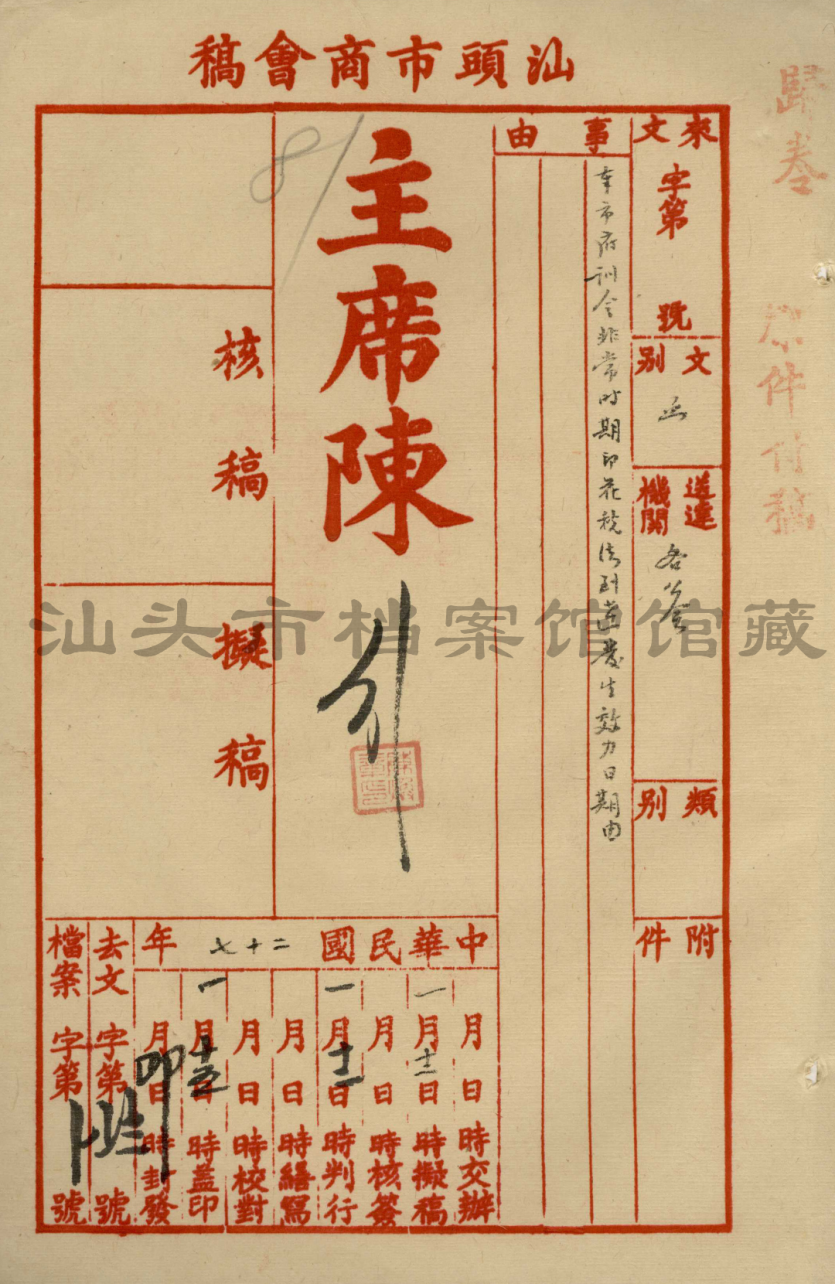 汕頭市商會稿
歸卷
原件付稿
來文
字第 號
文別
函
送達機關
類別
附件
事由
奉市府訓令非常時期印花稅法到達發生效力日期由
主席陳
核稿
擬稿
中華民國二十七年
月 日 時交辦
一月十二日 時擬稿
月 日 時核簽
一月十二日 時判行
月 日 時繕寫
月 日 時校對
一月十五日 時蓋印
月 日 時封發
去文 字第 號
檔案 字第 號
汕头市档案馆馆藏